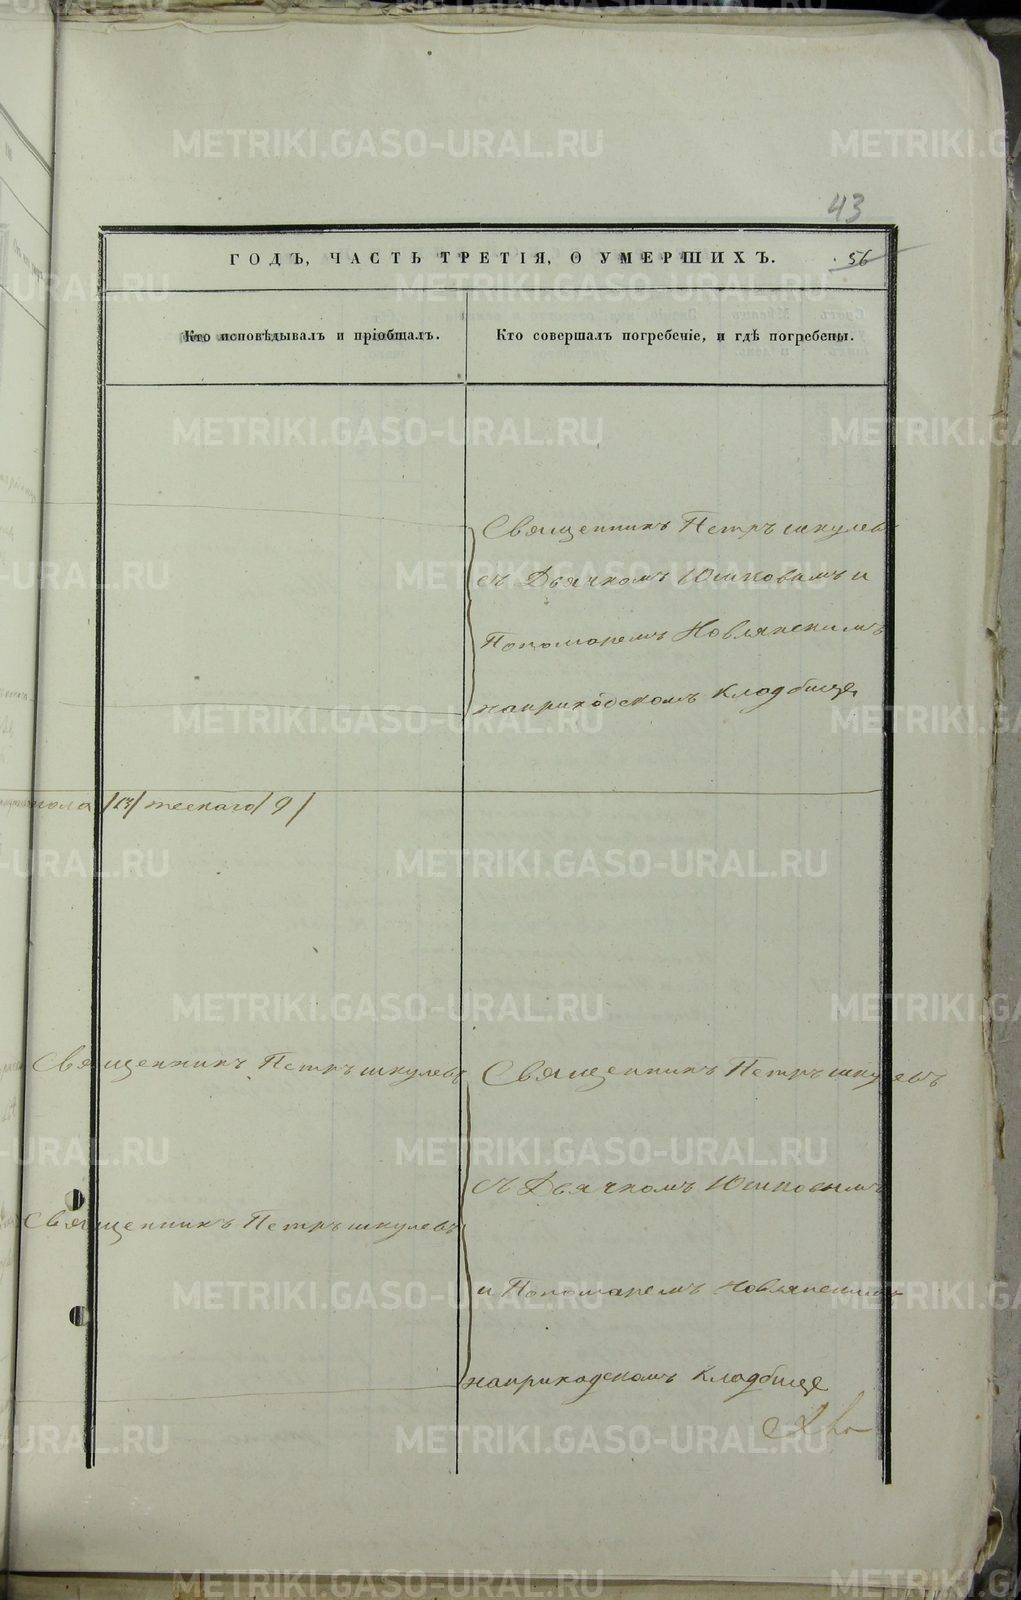 43
ГОДЪ, ЧАСТЬ ТРЕТІЯ, О УМЕРШИХЪ.
56
Кто исповѣдывалъ и пріобщалъ.
Кто совершалъ погребеніе, и гдѣ погребены.
Священникъ Петръ шкулевъ
съ Дьячкомъ Юшковымъ и
Пономаремъ Новлянскимъ
наприходскомъ Кладбище
пола /13/ женскаго / 9 /
Священникъ Петръ шкулевъ
Священникъ Петръ шкулевъ
Священникъ Петръ шкулевъ
съ Дьячкомъ Юшковымъ
и Пономаремъ Новлянскимъ
наприходскомъ Кладбище
METRIKI.GASO-URAL.RU